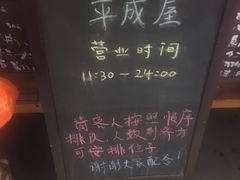 平成屋
营业时间
11:30-24:00
请客人按照顺序
排队,人数到齐方
可安排位子
谢谢大家配合!